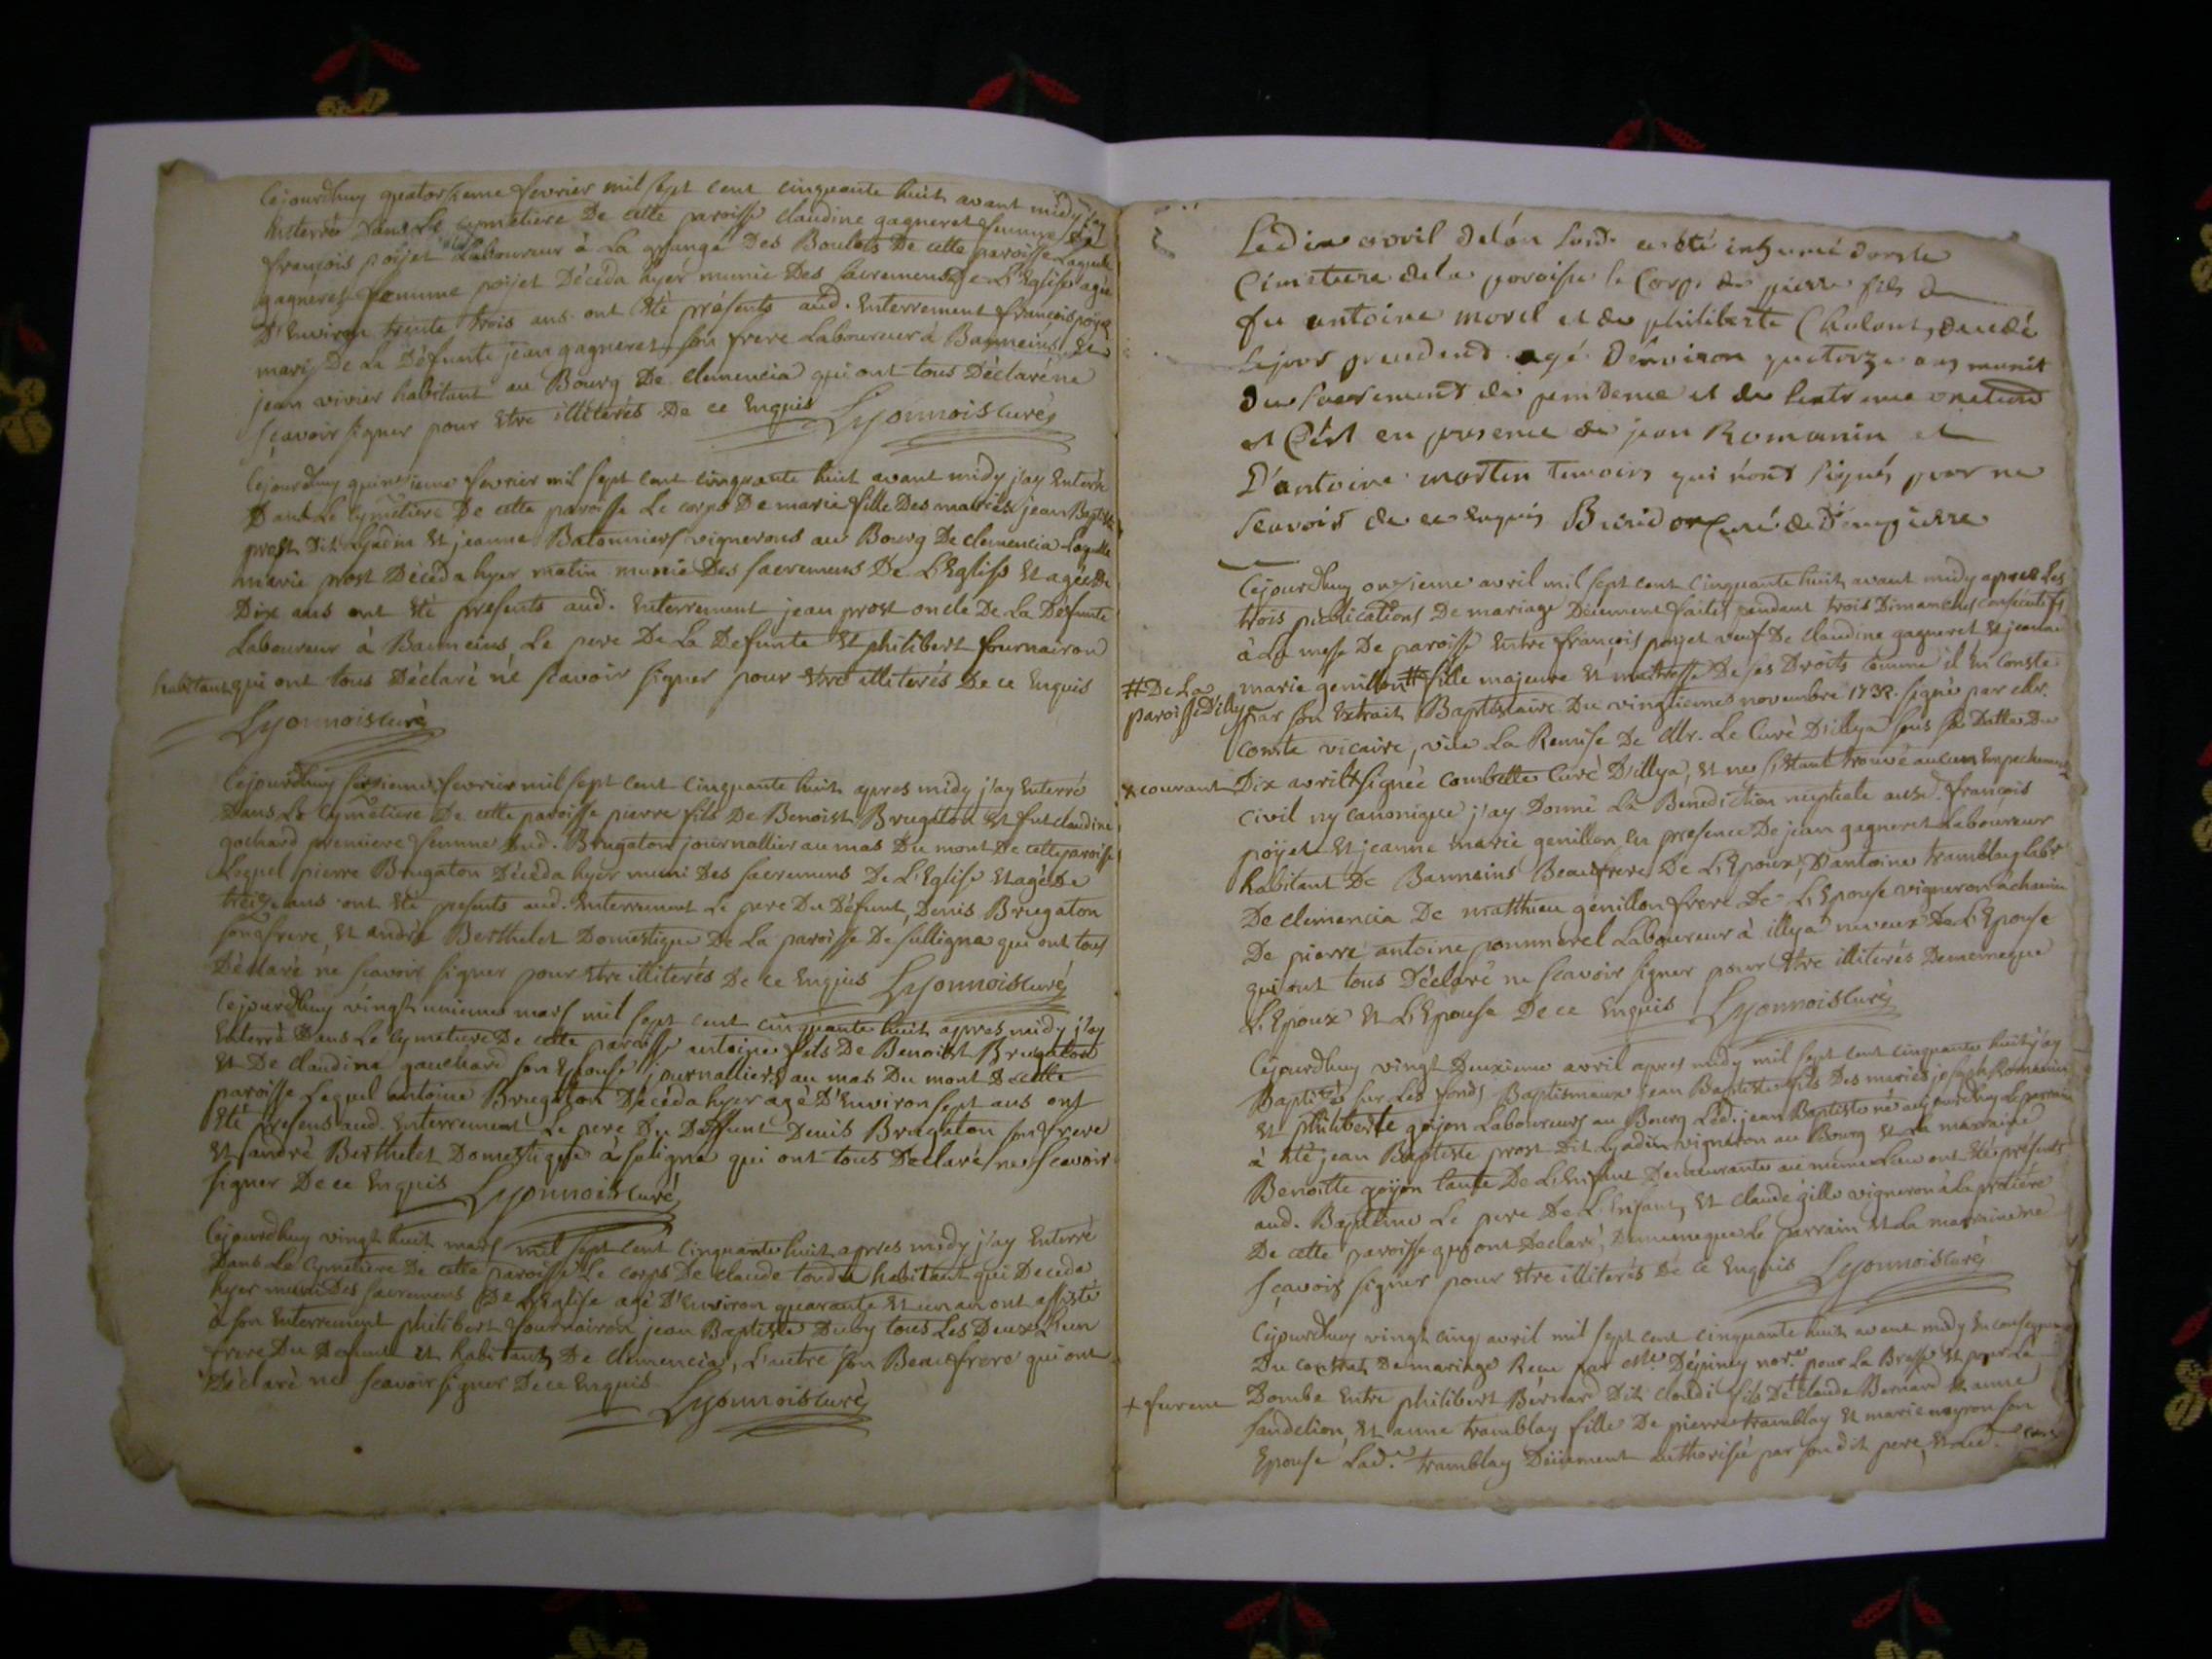 Cejourdhuy quatorsieme fevrier mil sept cent cinquante huit avant midy j'ay
Enterré Dans Le cymetiere De cette paroisse claudine gagneret femme De
françois poÿet Laboureur à La grange Des Boulets De cette paroisse Laquelle
gagneret femme poÿet Décéda hyer munie Des sacremens De L'Eglise agée
D'Environ trente trois ans ont Eté présents aud. Enterrement françois poÿet
mary De La Défunte jean gagneret son frere Laboureur à Banneins, Et
jean vivier habitant au Bourg De clemencia qui ont tous Déclaré ne
sçavoir signer pour Etre illiterés De ce Enquis Lyonnois Curé
Cejourdhuy quinsieme fevrier mil sept cent cinquante huit avant midy j'ay Enterré
Dans Le Cymetiere De cette paroisse Le corps De marie fille Des mariés jean Baptiste
prost Dit Lyadin Et jeanne Batonnier vignerons au Bourg De clemencia Laquelle
marie prost Décéda hyer matin munie Des sacremens De L'Eglise Et agée De
Dix ans ont Eté presents aud. Enterrement jean prost oncle De La Défunte
Laboureur à Banneins Le pere De La Defunte Et philibert fournairon
habitant qui ont tous Déclaré né scavoir signer pour Etre illiterés De ce Enquis
Lyonnois Curé
Cejourdhuy sesieme fevrier mil sept cent cinquante huit apres midy j'ay Enterré
Dans Le Cymetiere De cette paroisse pierre fils De Benoist Brugaton Et fut claudine
gochard premiere femme dud. Brugaton journallier au mas Du mont De cette paroisse
Lequel pierre Brugaton Décéda hyer muni Des sacremens De L'Eglise Et agé De
treize ans ont Eté presents aud. Enterrement Le pere Du Défunt, Denis Brugaton
son frere, Et andré Berthelet Domestique De La paroisse De sulligna qui ont tous
Déclaré ne scavoir signer pour Etre illiterés De ce Enquis Lyonnois Curé
Cejourdhuy vingt unieme mars mil sept cent cinquante huit apres midy j'ay
Enterré Dans Le cymetiere De cette paroisse antoine fils De Benoist Brugaton
Et De claudine gauchard son Epouse journalliers au mas Du mont De cette
paroisse Lequel antoine Brugaton Décéda hyer agé D'Environ sept ans ont
Eté presens aud. Enterrement Le pere Du Deffunt Denis Brugaton son frere
Et andré Berthelet Domestique à suligna qui ont tous Declaré ne scavoir
signer De ce Enquis Lyonnois Curé
Cejourdhuy vingt huit mars mil sept cent cinquante huit apres midy j'ay Enterré
Dans Le Cymetiere De cette paroisse Le corps De claude tondu habitant qui Deceda
hyer muni Des sacremens De L'Eglise agé D'Environ quarante Et un an ont assisté
à son Enterrement philibert fournairon jean Baptiste Duby tous Les Deux L'un
frere Du Defunt et habitants De clemencia, L'autre son Beaufrere qui ont
Déclaré ne scavoir signer De ce Enquis
Lyonnois Curé
Le dix avril de l'an susd. a eté inhumé dans le
Cimetiere de la paroisse le Corps de pierre fils de
feu antoine morel et de philiberte Chalant, decedé
le jour precedend agé d'environ quatorze ans munit
du sacrement de penitence et de lextreme onction
et C'est en presence de jean Romanin et
D'antoine martin temoins qui n'ont signés pour ne
scavoir de ce enquis
Cejourdhuy onsieme avril mil sept cent cinquante huit avant midy apres Les
trois publications De mariage Deüement faites pendant trois Dimanches consécutifs
à La messe De paroisse Entre françois poÿet veuf De claudine gagneret Et jeanne
marie genillon # fille majeure Et maitresse De ses Droits comme il En conste
# De La paroisse D'illya
par son Extrait Baptistaire Du vingtieme novembre 1732. signé par Mr.
comte vicaire, vüe La Remise De Mr. Le Curé D'illya sous sa Datte Du
Dix avril x signée combette Curé D'illya, Et ne s'Etant trouvé aucun Empechement
x courant
civil ny canonique j'ay Donné La Benediction nuptiale ausd. françois
poÿet Et jeanne marie genillon En presence De jean gagneret Laboureur
habitant De Banneins Beaufrere De L'Epoux, D'antoine tramblay Labr
De clemencia De matthieu genillon frere De L'Epouse vigneron à chanin
De pierre antoine pommerel Laboureur à illya neveux De L'Epouse
qui ont tous Déclaré ne scavoir signer pour Etre illiterés De meme que
L'Epoux Et L'Epouse De ce Enquis Lyonnois Curé
Cejourdhuy vingt Deuxieme avril apres midy mil sept cent cinquante huit j'ay
Baptisé sur Les fonds Baptismaux jean Baptiste fils Des mariés joseph Romanin
Et philiberte goÿon Laboureurs au Bourg Led. jean Baptiste né aujourdhuy Le parrain
à Eté jean Baptiste prost Dit Lyadin vigneron au Bourg Et La marraine
Benoitte goÿon tante De L'Enfant Demeurante au meme Lieu ont Eté présents
aud. Baptême Le pere De L'Enfant, Et claude gille vigneron à la
De cette paroisse qui ont Declaré, De meme que Le parrain Et La marraine ne
sçavoir signer pour Etre illiterés De ce Enquis Lyonnois Curé
Cejourdhuy vingt cinq avril mil sept cent cinquante huit avant midy En consequence
Du contrat De mariage Recu par Me. Dépiney nore. pour La Bresse Et pour La
Dombe Entre philibert Bernard Dit claudi fils De + claude Bernard Et anne
+ furent
sandelion, Et anne tramblay fille De pierre tramblay Et marie noyron son
Epouse Lad.e tramblay Deüement authorisée par son dit pere, Et Led.